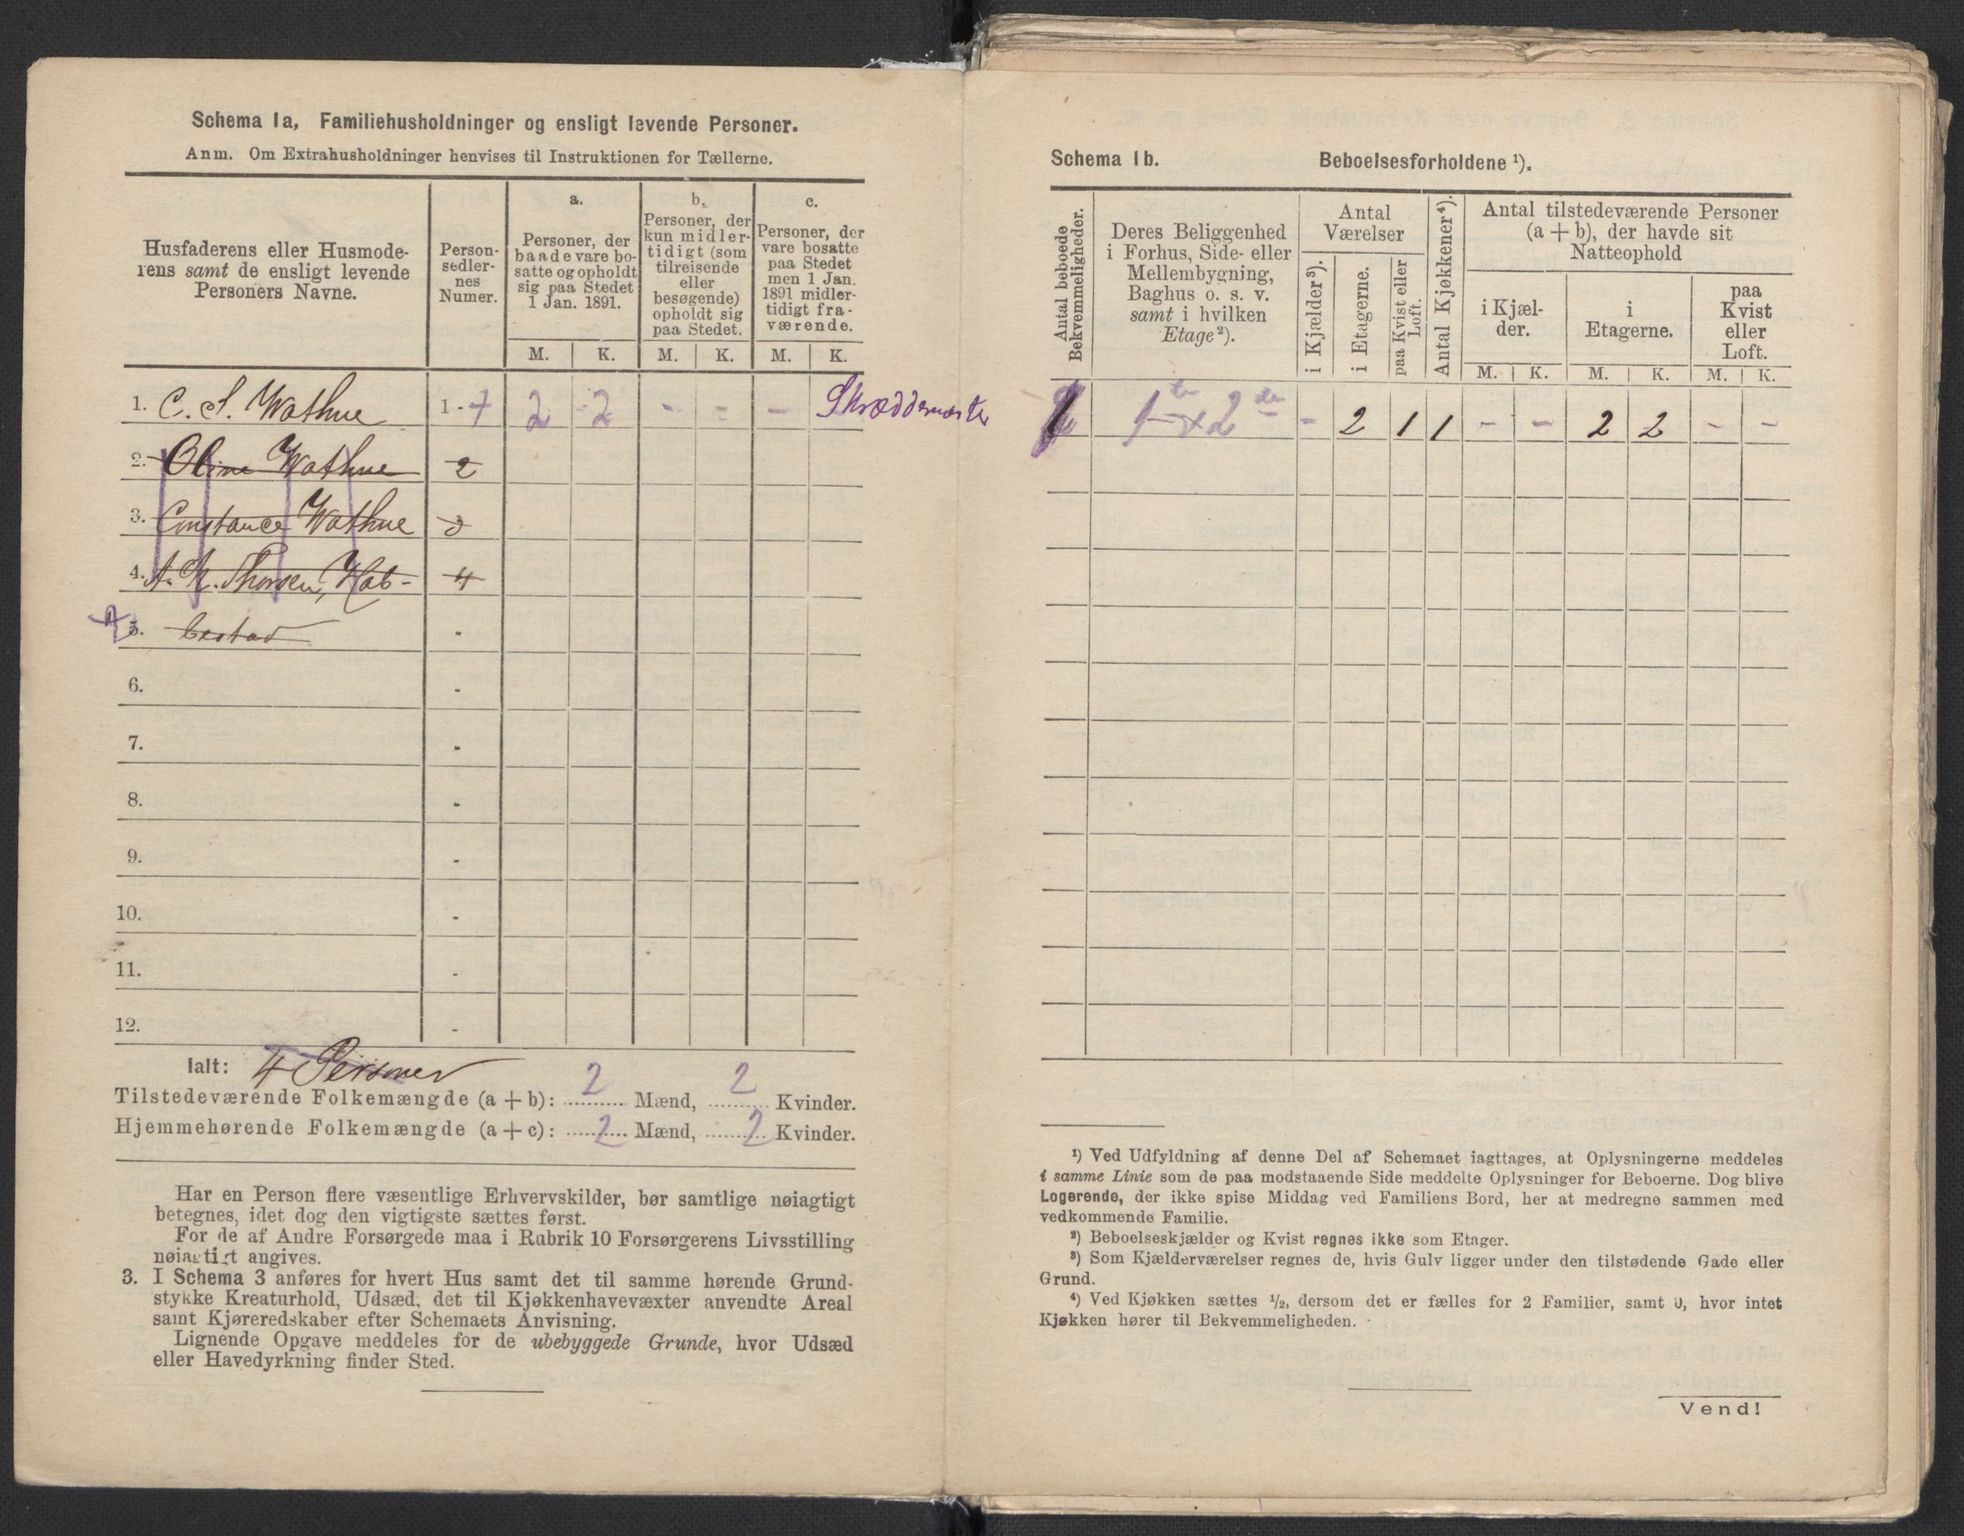 Schema 1a, Familiehusholdninger og ensligt levende Personer.
Anm. Om Extrahusholdninger henvises til Instruktionen for Tællerne.
Husfaderens eller Husmoderens samt de ensligt levende Personers Navne.
Personsedlernes Numer.
a.
Personer, der baade vare bosatte og opholdt sig paa Stedet 1 Jan. 1891.
b.
Personer, der kun midlertidigt (som tilreisende eller besøgende) opholdt sig paa Stedet.
c.
Personer, der vare bosatte paa Stedet men 1 Jan. 1891 midlertidigt fraværende.
M. K. M. K. M. K.
1. C. S. Wathne 1 - 4 2 2 - - - Skræddermester
2. Oline Wathne 2
3. Constance Wathne 3
4. A. K. Thorsen, Hab- 4
5. bestad -
6. -
7. -
8. -
9. -
10. -
11. -
12. -
Ialt: 4 Personer
Tilstedeværende Folkemængde (a + b): 2 Mænd, 2 Kvinder.
Hjemmehørende Folkemængde (a + c): 2 Mænd, 2 Kvinder.
Har en Person flere væsentlige Erhvervskilder, bør samtlige nøiagtigt
betegnes, idet dog den vigtigste sættes først.
For de af Andre Forsørgede maa i Rubrik 10 Forsørgerens Livsstilling
nøiagtigt angives.
3. I Schema 3 anføres for hvert Hus samt det til samme hørende Grund-
stykke Kreaturhold, Udsæd, det til Kjøkkenhavevæxter anvendte Areal
samt Kjøreredskaber efter Schemaets Anvisning.
Lignende Opgave meddeles for de ubebyggede Grunde, hvor Udsæd
eller Havedyrkning finder Sted.
Schema 1b. Beboelsesforholdene ¹).
Antal beboede Bekvemmeligheder.
Deres Beliggenhed i Forhus, Side- eller Mellembygning, Baghus o. s. v. samt i hvilken Etage²).
Antal Værelser
i Kjælder³).
i Etagerne.
paa Kvist eller Loft.
Antal Kjøkkener⁴).
Antal tilstedeværende Personer (a + b), der havde sit Natteophold
i Kjælder.
i Etagerne.
paa Kvist eller Loft.
M. K. M. K. M. K.
1 1te x 2den - 2 1 1 - - 2 2 - -
¹) Ved Udfyldning af denne Del af Schemaet iagttages, at Oplysningerne meddeles
i samme Linie som de paa modstaaende Side meddelte Oplysninger for Beboerne. Dog blive
Logerende, der ikke spise Middag ved Familiens Bord, her at medregne sammen med
vedkommende Familie.
²) Beboelseskjælder og Kvist regnes ikke som Etager.
³) Som Kjælderværelser regnes de, hvis Gulv ligger under den tilstødende Gade eller
Grund.
⁴) Ved Kjøkken sættes ½, dersom det er fælles for 2 Familier, samt 0, hvor intet
Kjøkken hører til Bekvemmeligheden.
Vend!